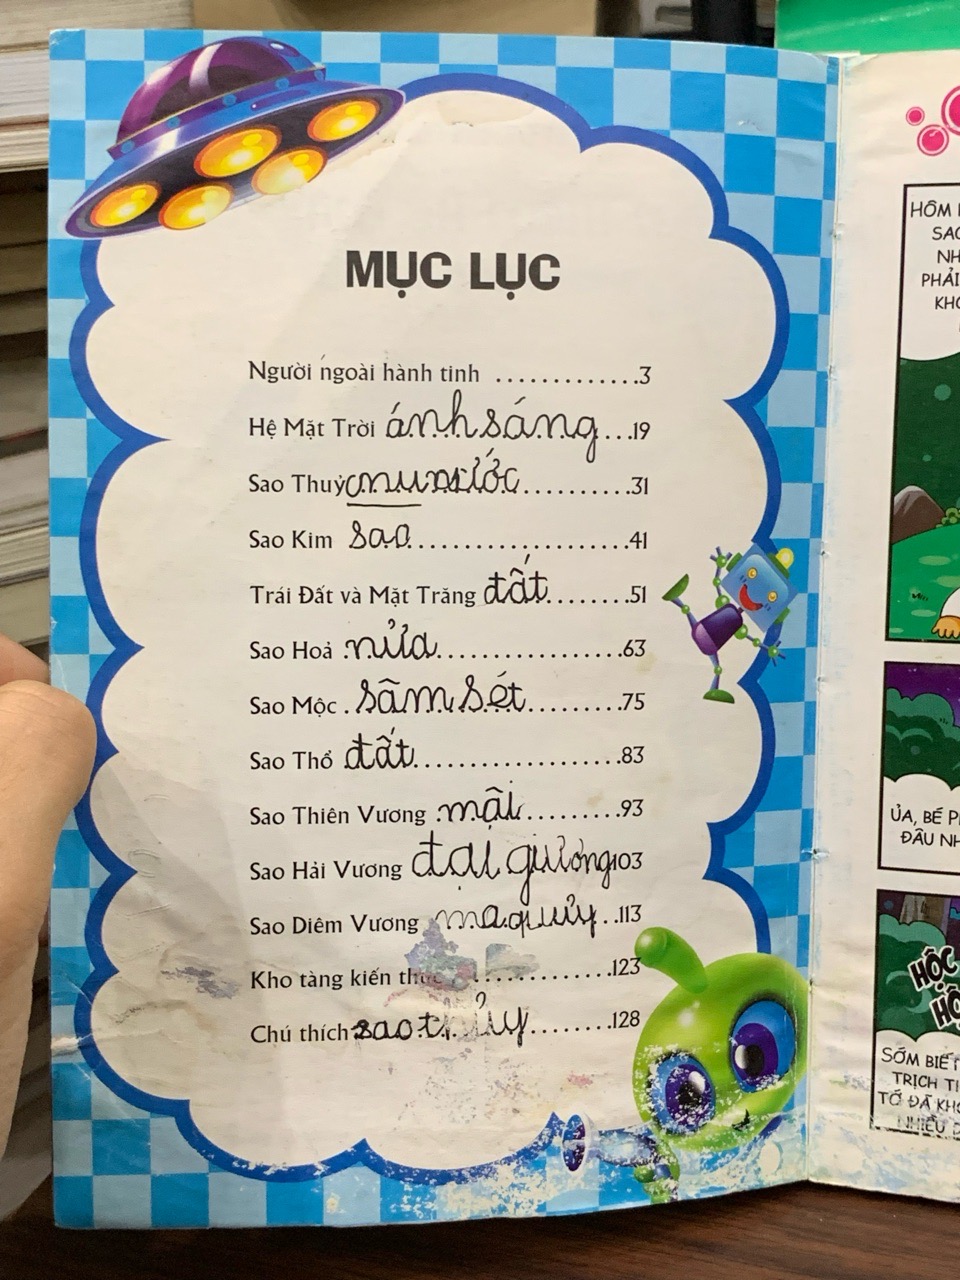 MỤC LỤC
Người ngoài hành tinh .............3
Hệ Mặt Trời ánh sáng...19
Sao Thuỷ nước............31
Sao Kim sao....................41
Trái Đất và Mặt Trăng đất.......51
Sao Hoả .nửa.................63
Sao Mộc . sãm sét.........75
Sao Thổ đất...................83
Sao Thiên Vương .mậi.........93
Sao Hải Vương đại gương103
Sao Diêm Vương ma quủy..113
Kho tàng kiến thức ............123
Chú thích sao thủy........128
HÔM
NH
PHẢI
ỦA, BÉ
ĐÂU NH
HỘC
HỘ
SỚM BIẾT
TRỊCH TH
TỚ ĐÃ KHÔ
NHIỀU